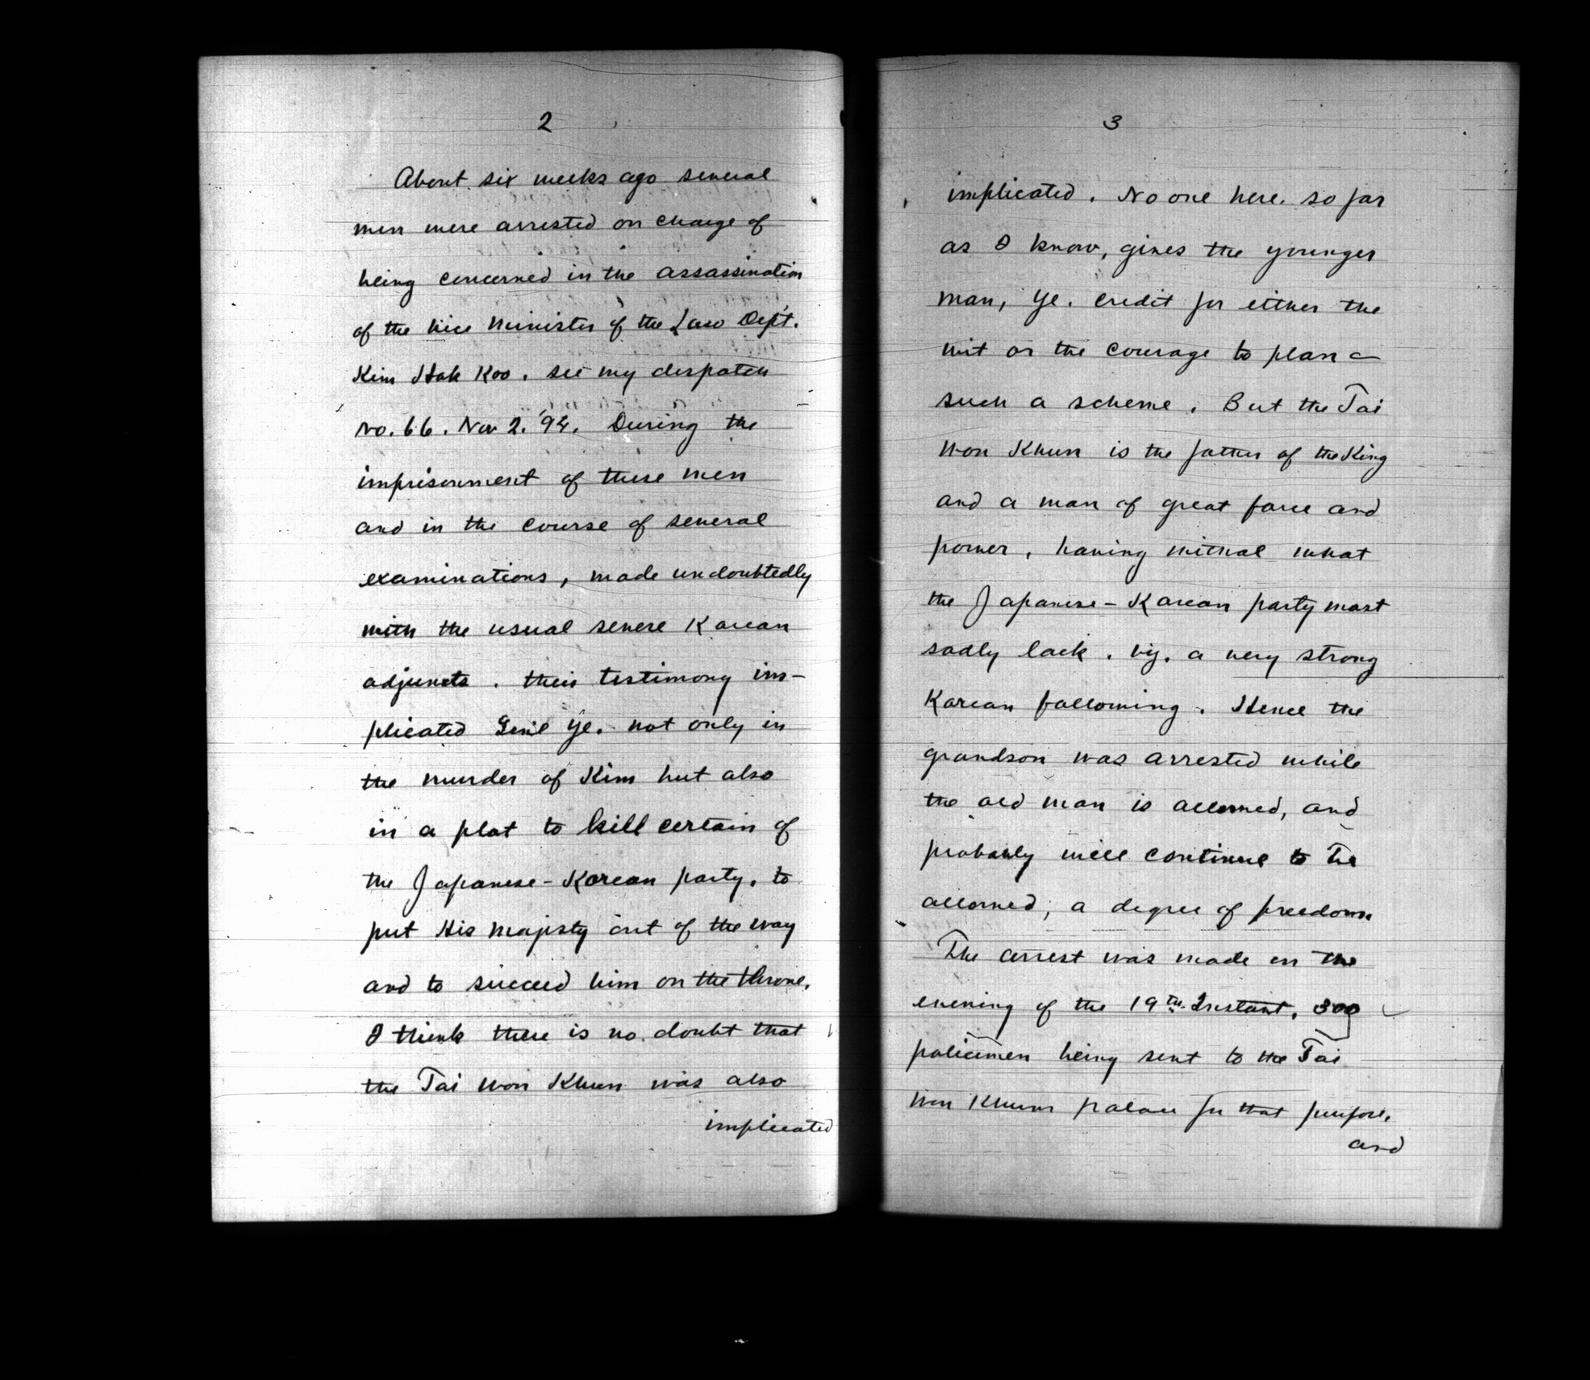 2
About six weeks ago several
men were arrested on charge of
being concerned in the assassination
of the Vice Minister of the Law Dep't.
Kim Hak Koo. see my despatch
No. 66. Nov 2. '94. During the
imprisonment of these men
and in the course of several
examinations, made undoubtedly
with the usual severe Korean
adjuncts. their testimony im-
plicated Gen'l Ye. not only in
the murder of Kim but also
in a plot to kill certain of
the Japanese-Korean party, to
put His Majesty out of the way
and to succeed him on the throne.
I think there is no doubt that
the Tai Won Khun was also
implicated
3
implicated. No one here. so far
as I know, gives the younger
man, Ye. credit for either the
wit or the courage to plan
such a scheme. But the Tai
Won Khun is the father of the King
and a man of great force and
power, having withal what
the Japanese-Korean party most
sadly lack. viz. a very strong
Korean following. Hence the
grandson was arrested while
the old man is allowed, and
probably will continue to be
allowed, a degree of freedom
The arrest was made on the
evening of the 19th. Instant, 300
policemen being sent to the Tai
Won Khuns palace for that purpose,
and